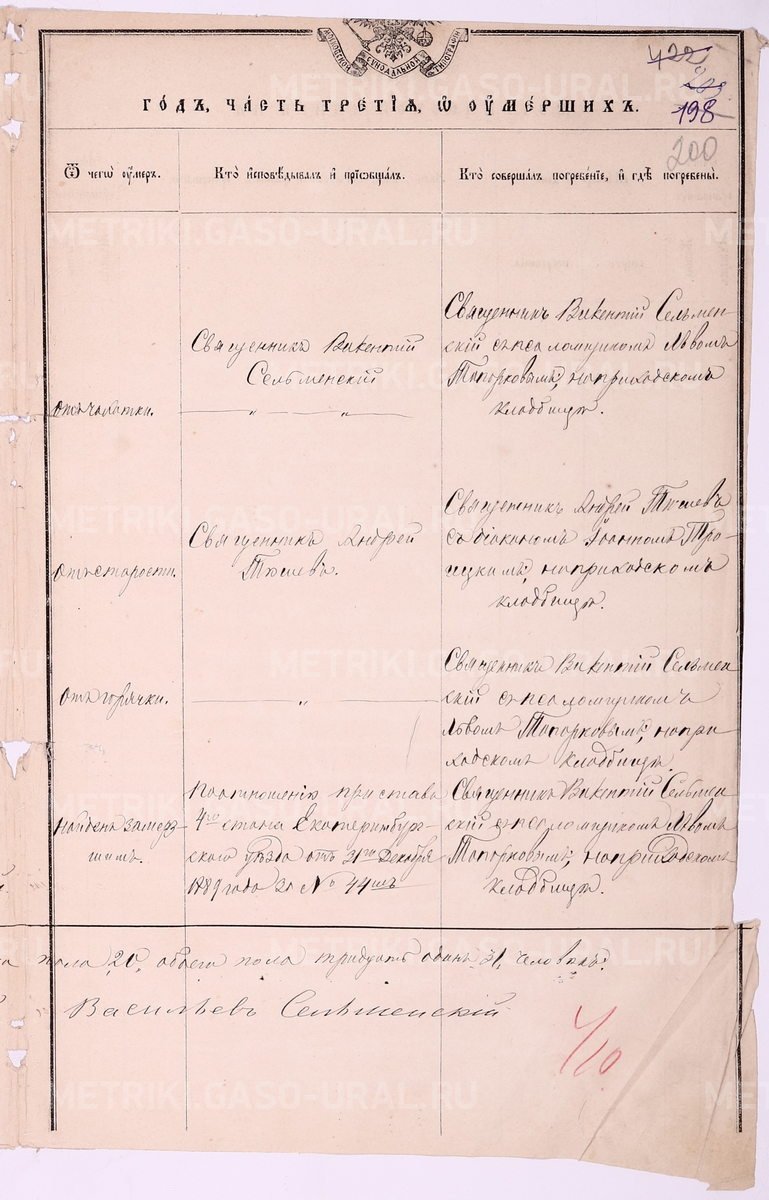 МОСКОВСКОЙ СѴНОДАЛЬНОЙ ТИПОГРАФІИ
422
198
200
ГОДЪ, ЧАСТЬ ТРЕТІЯ, Ѡ ОУМЕРШИХЪ.
Ѿ чегѡ оумеръ.
Кто исповѣдывалъ и приобщалъ.
Кто совершалъ погребеніе, и гдѣ погребены.
Священникъ Викентій
Сельменскій
отъ чахотки.
Священникъ Викентій Сельмен-
скій съ псаломщикомъ Львомъ
Топорковымъ, на приходскомъ
кладбищѣ.
Священникъ Андрей
отъ старости.
Священникъ Андрей
съ діакономъ Іоанномъ Тро-
ицкимъ, на приходскомъ
кладбищѣ.
отъ горячки.
Священникъ Викентій Сельмен-
скій съ псаломщикомъ
Львомъ Топорковымъ, на при-
ходскомъ кладбищѣ.
Найденъ замерз-
шимъ.
По отношенію пристава
4го стана Екатеринбург-
скаго уѣзда отъ 31го Декабря
1889 года за № 44мъ
Священникъ Викентій Сельмен-
скій съ псаломщикомъ Львомъ
Топорковымъ, на приходскомъ
кладбищѣ.
пола 20, обоего пола тридцать одинъ 31, человѣкъ.
Васильевъ Сельменскій
METRIKI.GASO-URAL.RU